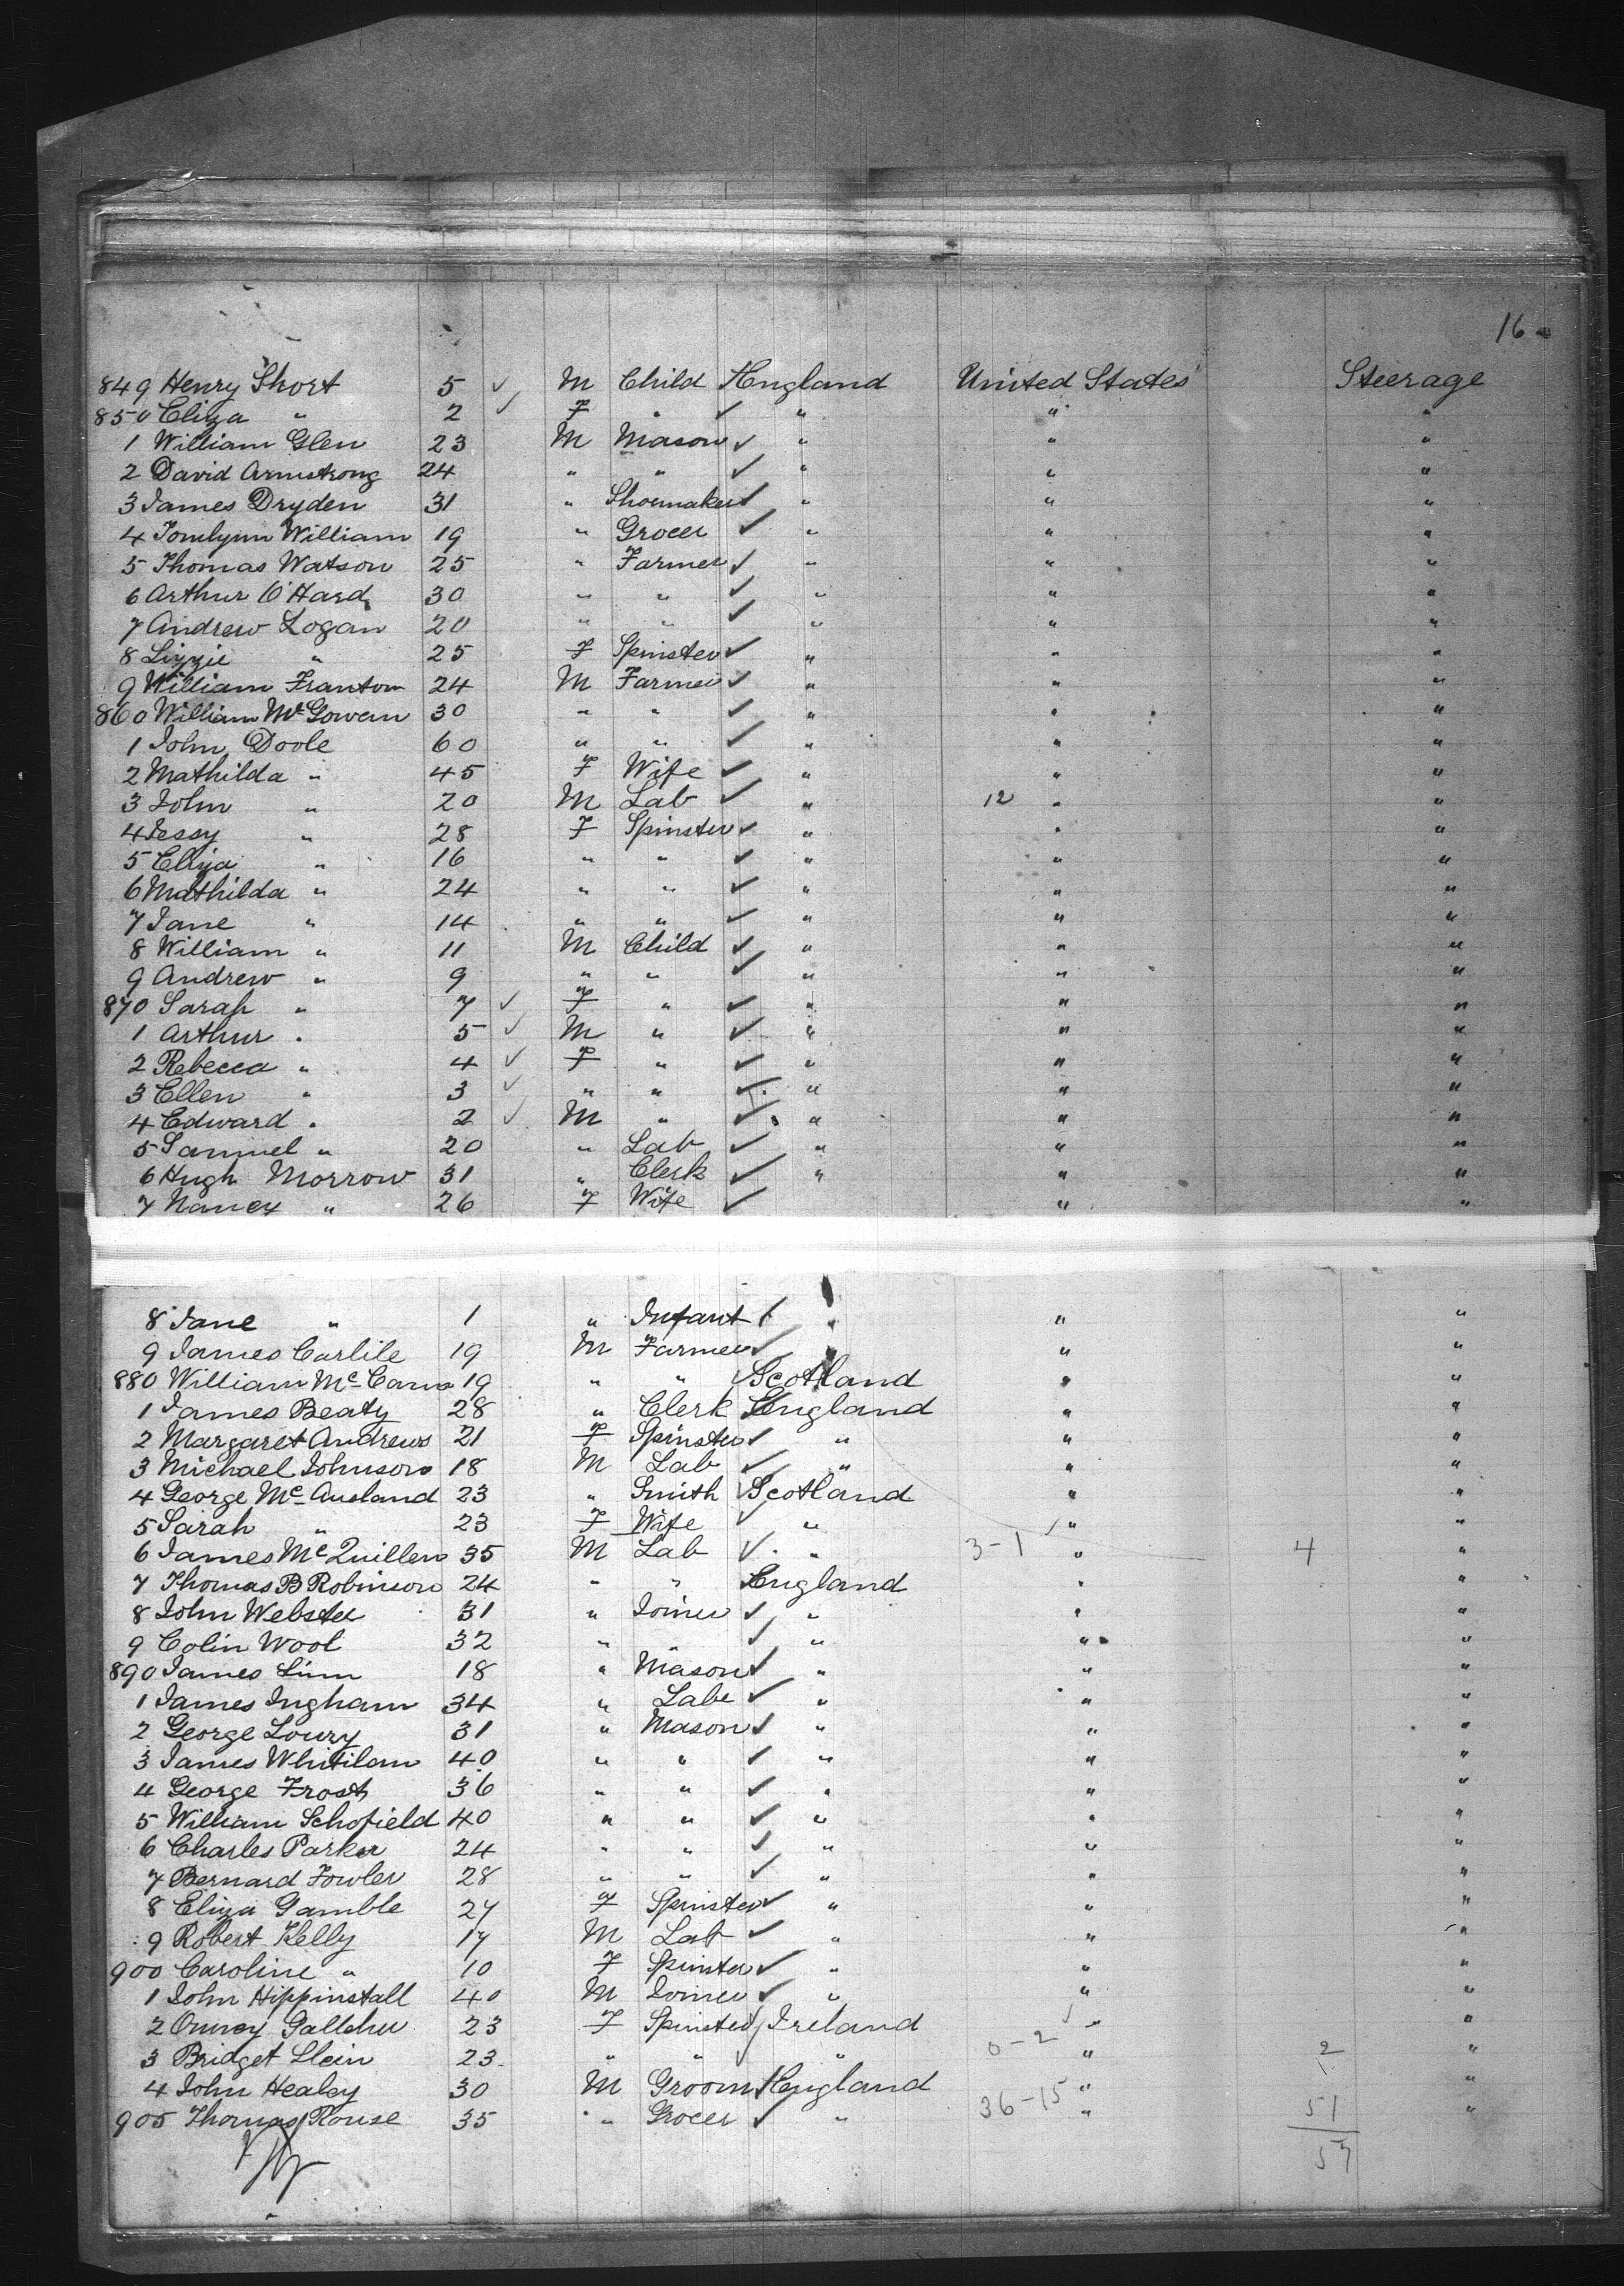 16
849 Henry Short 5 ✓ M Child ✓ England United States Steerage
850 Eliza " 2 ✓ F " ✓ " " "
1 William Glen 23 M Mason ✓ " " "
2 David Armstrong 24 " " ✓ " " "
3 James Dryden 31 " Shoemaker ✓ " " "
4 Tomlynn William 19 " Grocer ✓ " " "
5 Thomas Watson 25 " Farmer ✓ " " "
6 Arthur O'Hard 30 " " ✓ " " "
7 Andrew Logan 20 " " ✓ " " "
8 Lizzie " 25 F Spinster ✓ " " "
9 William Franton 24 M Farmer ✓ " " "
860 William McGowen 30 " " ✓ " " "
1 John Doole 60 " " ✓ " " "
2 Mathilda " 45 F Wife ✓ " " "
3 John " 20 M Lab ✓ " 12 " "
4 Jessy " 28 F Spinster ✓ " " "
5 Eliza " 16 " " ✓ " " "
6 Mathilda " 24 " " ✓ " " "
7 Jane " 14 " " ✓ " " "
8 William " 11 M Child ✓ " " "
9 Andrew " 9 " " ✓ " " "
870 Sarah " 7 ✓ F " ✓ " " "
1 Arthur " 5 ✓ M " ✓ " " "
2 Rebecca " 4 ✓ F " ✓ " " "
3 Ellen " 3 ✓ " " ✓ " " "
4 Edward " 2 ✓ M " ✓ " " "
5 Samuel " 20 " Lab ✓ " " "
6 Hugh Morrow 31 " Clerk ✓ " " "
7 Nancy " 26 F Wife ✓ " "
8 Jane " 1 " Infant ✓ " " "
9 James Carlile 19 M Farmer ✓ " " "
880 William McCann 19 " " ✓ Scotland " "
1 James Beaty 28 " Clerk ✓ England " "
2 Margaret Andrews 21 F Spinster ✓ " " "
3 Michael Johnson 18 M Lab ✓ " " "
4 George McAusland 23 " Smith ✓ Scotland " "
5 Sarah " 23 F Wife ✓ " ✓ " "
6 James McQuillen 35 M Lab ✓ " 3-1 " 4 "
7 Thomas B Robinson 24 " " ✓ England " "
8 John Webster 31 " Joiner ✓ " " "
9 Colin Wool 32 " " ✓ " " "
890 James Linn 18 " Mason ✓ " " "
1 James Ingham 34 " Labr ✓ " " "
2 George Loury 31 " Mason ✓ " " "
3 James Whitilam 40 " " ✓ " " "
4 George Frost 36 " " ✓ " " "
5 William Schofield 40 " " ✓ " " "
6 Charles Parker 24 " " ✓ " " "
7 Bernard Fowler 28 " " ✓ " " "
8 Eliza Gamble 27 F Spinster ✓ " " "
9 Robert Kelly 17 M Lab ✓ " " "
900 Caroline " 10 F Spinster ✓ " " "
1 John Hippinstall 40 M Joiner ✓ " " "
2 23 F Spinster ✓ Ireland ✓ " "
3 Bridget 23 " " ✓ " 0-2 " 2 "
4 John Healey 30 M Groom ✓ England " "
905 Thomas Rouse 35 " Grocer ✓ " 36-15 " 51 "
57